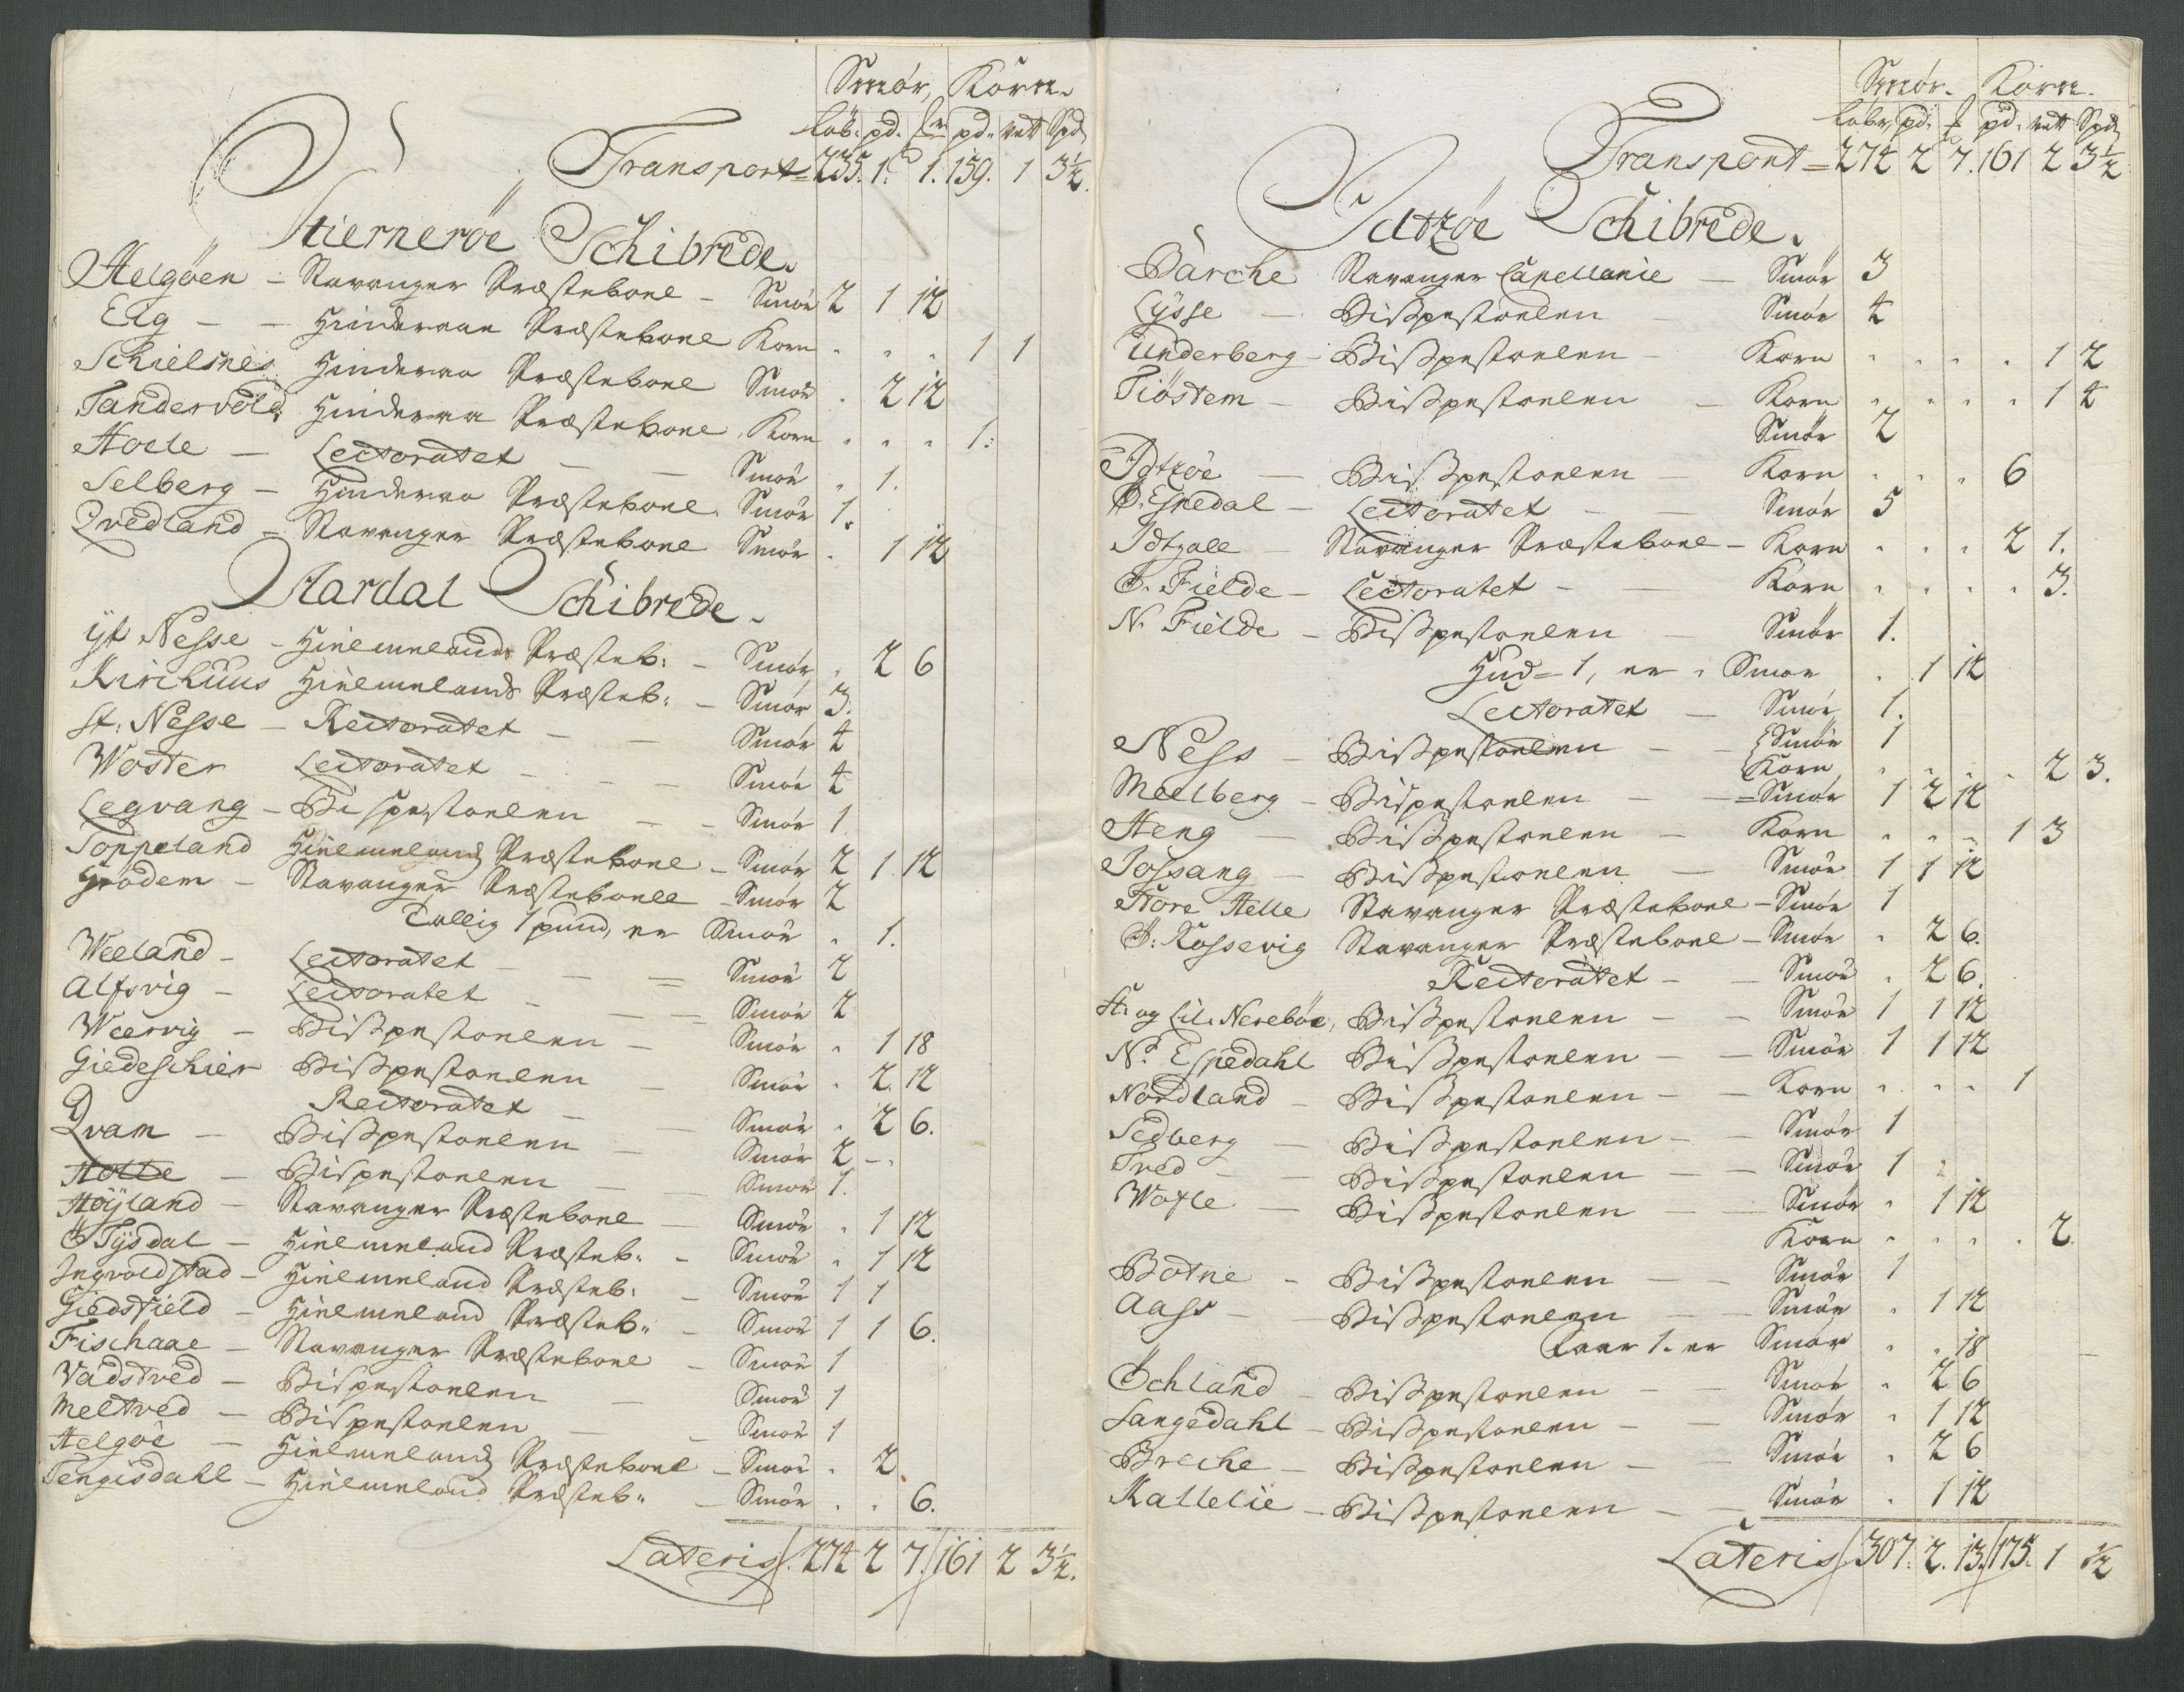 Smör, Korn.
Löb. pd. pd. vett Spd
Transport = 235. 1. 1. 159. 1 3½.
Stierneröe Schibrede.
Helgöen - Stavanger Præstebone - Smör 2 1 12
Eeg - - Hinderaae Præstebone Korn " " " 1 1
Schielsnes Hinderaa Præstebone Smör . 2 12
Tandervold, Hinderaa Præstebone Korn " " " 1.
Hoele - Lectoratet - - Smör " 1.
Selberg - Hinderaa Præstebone Smör 1.
Qvedland - Stavanger Præstebone Smör . 1 12
Aardal Schibrede.
yt Nesse - Hielmelands Præsteb: - Smör, " 2 6
Kirchuus Hielmelands Præsteb: - Smör 3.
st: Nesse - Rectoratet - - Smör 4
Woster Lectoratet - - Smör 4
Legvang - Bispestoelen - - Smör 1
Toppeland Hielmelands Præstebone - Smör 2 1 12
Grödem - Stavanger Præstebonele - Smör 2
Tallig 1 pund, er Smör " 1.
Weeland - Lectoratet - = Smör 2
Alfsvig - Lectoratet - = Smör 2
Weervig - Bißpestoelen - Smör " 1 18
Giedeschier Bißpestoelen - Smör " 2. 12
Rectoratet - - Smör " 2 6.
Qvam - Bißpestoelen - Smör 2 -.
Holte - Bispestoelen - Smör 1.
Höyland - Stavanger Præstebone - Smör " 1 12
Ö Tysdal - Hielmeland Præsteb: - Smör " 1 12
Ingvoldstad - Hielmeland Præsteb: - Smör 1 1
Giedsfield - Hielmeland Præsteb: - Smör 1 1 6.
Fischaae - Stavanger Præstebone - Smör 1
Vadstved - Bispestoelen - Smör 1
Meltved - Bispestoelen - Smör 1
Helgöe - Hielmelands Præstebone - Smör . 2
Tengisdahl - Hielmeland Præsteb: - Smör . " 6.
Lateris /. 274 2 7./161 2 3½.
Smör. Korn.
Löbr, pd. pd. vett Spd
Transport = 274 2 7. 161 2 3½
Idtzöe Schibrede.
Bärche Stavanger Capellanie - Smör 3
Lysse - Bißpestoelen - Smör 4
Underberg - Bißpestoelen - Korn " " " " 1 2
Tiöstem - Bißpestoelen - Korn " " " " 1 4
Smör 2
Idtzöe - Bißpestoelen - Korn " " " 6
Ö. Espedal - Lectoratet - - Smör 5
Idtzall - Stavanger Præstebone - Korn " " " 2 1.
Ö. Fielde - Lectoratet - - Korn " " " " 3.
N. Fielde - Bißpestoelen - Smör 1.
Hud = 1, er " Smör . 1 12
Lectoratet - Smör 1.
Ness - Bißpestoelen - - Smör 1
Korn " " " " 2 3.
Meelberg - Bißpestoelen - = Smör 1 2 12
Heng - Bißpestoelen - Korn " " " 1 3
Jossang - Bißpestoelen - Smör 1 1 12
Store Helle Stavanger Præstebone - Smör 1
Ö: Rossevig Stavanger Præstebone - Smör " 2 6.
Rectoratet - - Smör " 2 6.
St: og Lil. Nereböe, Bißpestoelen - - Smör 1 1 12
N. Espedahl Bißpestoelen - - Smör 1 1 12
Nordland - Bißpestoelen - - Korn " " " 1
Sedberg - Bißpestoelen - - Smör 1
Tved - Bißpestoelen - - Smör 1
Wotle - Bißpestoelen - - Smör " 1 12
Korn " " " " 2.
Botne - Bißpestoelen - - Smör 1
Aass - Bißpestoelen - - Smör " 1 12
Faar 1. er Smör " " 18
Öchland - Bißpestoelen - - Smör " 2 6
Langedahl - Bißpestoelen - - Smör " 1 12
Breche - Bißpestoelen - - Smör " 2 6
Kallelie - Bißpestoelen - - Smör " 1 12
Lateris /307. 2. 13./175. 1 ½